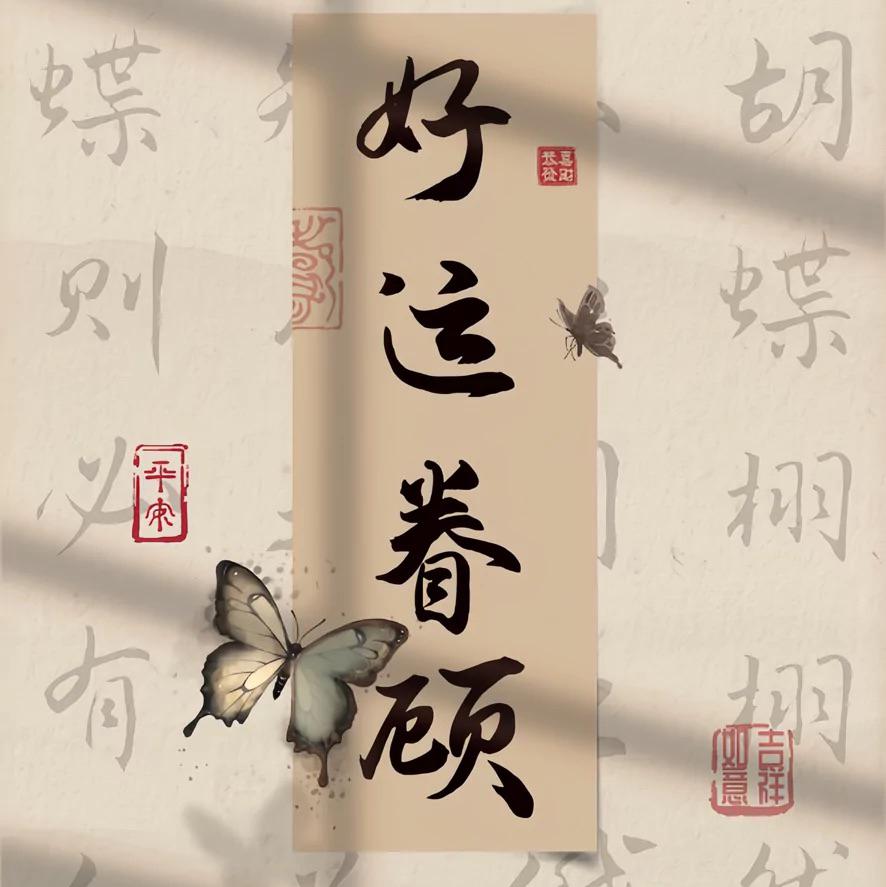 好运眷顾
胡蝶栩栩然
蝶则必有
平安
吉祥如意